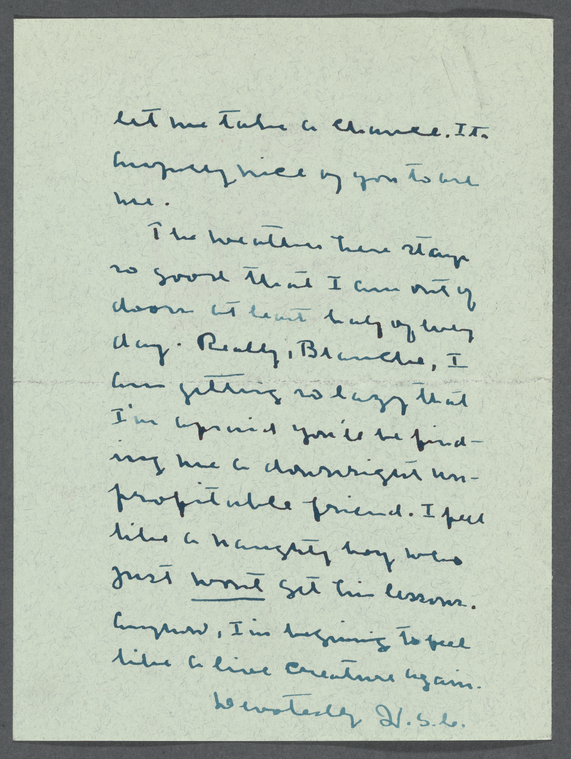 let me take a chance. It's
awfully nice of you to ask
me.
The weather here stays
so good that I am out of
doors at least half of every
day. Really, Blanche, I
am getting so lazy that
I'm afraid you'll be find-
ing me a downright un-
profitable friend. I feel
like a naughty boy who
just won't get his lessons.
Anyhow, I'm begining to feel
like a live creature again.
Devotedly W.S.C.